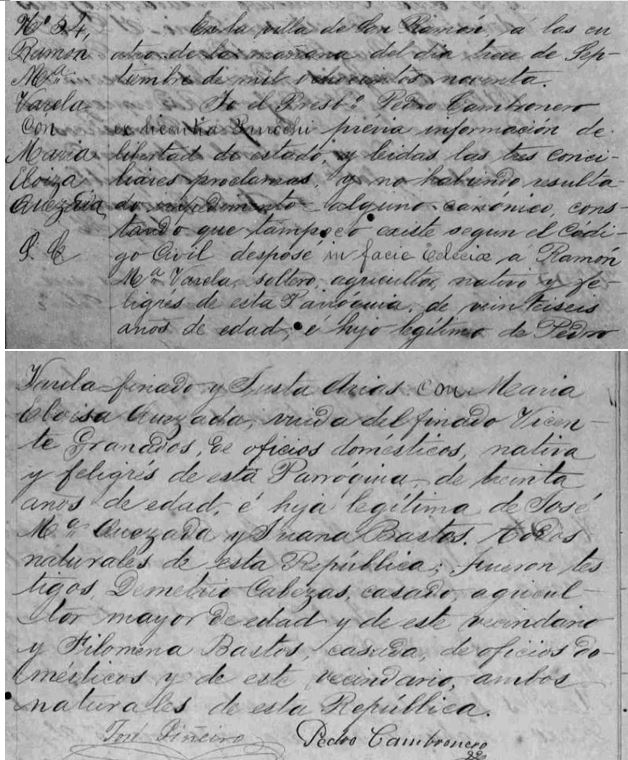 Nº 34,
Ramon
Mª
Varela
Con
Maria
Eloiza
Quezada
En la villa de San Ramón, á las cu
atro de la mañana del día trece de Sep-
tiembre de mil ochocientos noventa.
Yo el Presbº Pedro Cambronero
ex licentia Parochi previa información de
libertad de estado, y leidas las tres conci-
liares proclamas, y no habiendo resulta-
do impedimento alguno canonico, cons-
tando que tampoco existe segun el Codi-
go Civil desposé in facie eclecice á Ramón
Mª Varela, soltero, agricultor, nativo y fe-
ligres de esta Parroquia, de veintiseis
años de edad, é hijo legítimo de Pedro
Varela finado y Justa Arias con Maria
Eloisa Quezada, viuda del finado Vicen-
te Granados, de oficios domésticos, nativa
y feligrés de esta Parróquia, de treinta
anos de edad, é hija legítima de José
Mª Quezada y Juana Bastos. todos
naturales de esta República; fueron tes
tigos, Demetrio Cabezas, casado, agricul-
tor mayor de edad y de este vecindario
y Filomena Bastos casada, de oficios do-
mésticos y de este vecindario, ambos
naturales de esta República.
José Piñeiro Pedro Cambronero